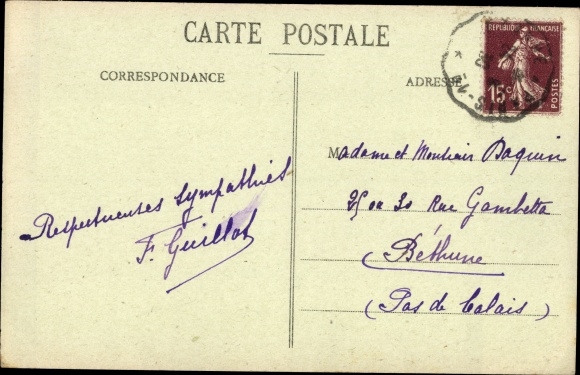 CARTE POSTALE
CORRESPONDANCE
ADRESSE
REPUBLIQUE FRANÇAISE
15c
POSTES
Respectueuses sympathies
F. Guillot
Madame et Monsieur Daquin
25 ou 30 Rue Gambetta
Béthune
(Pas de Calais)